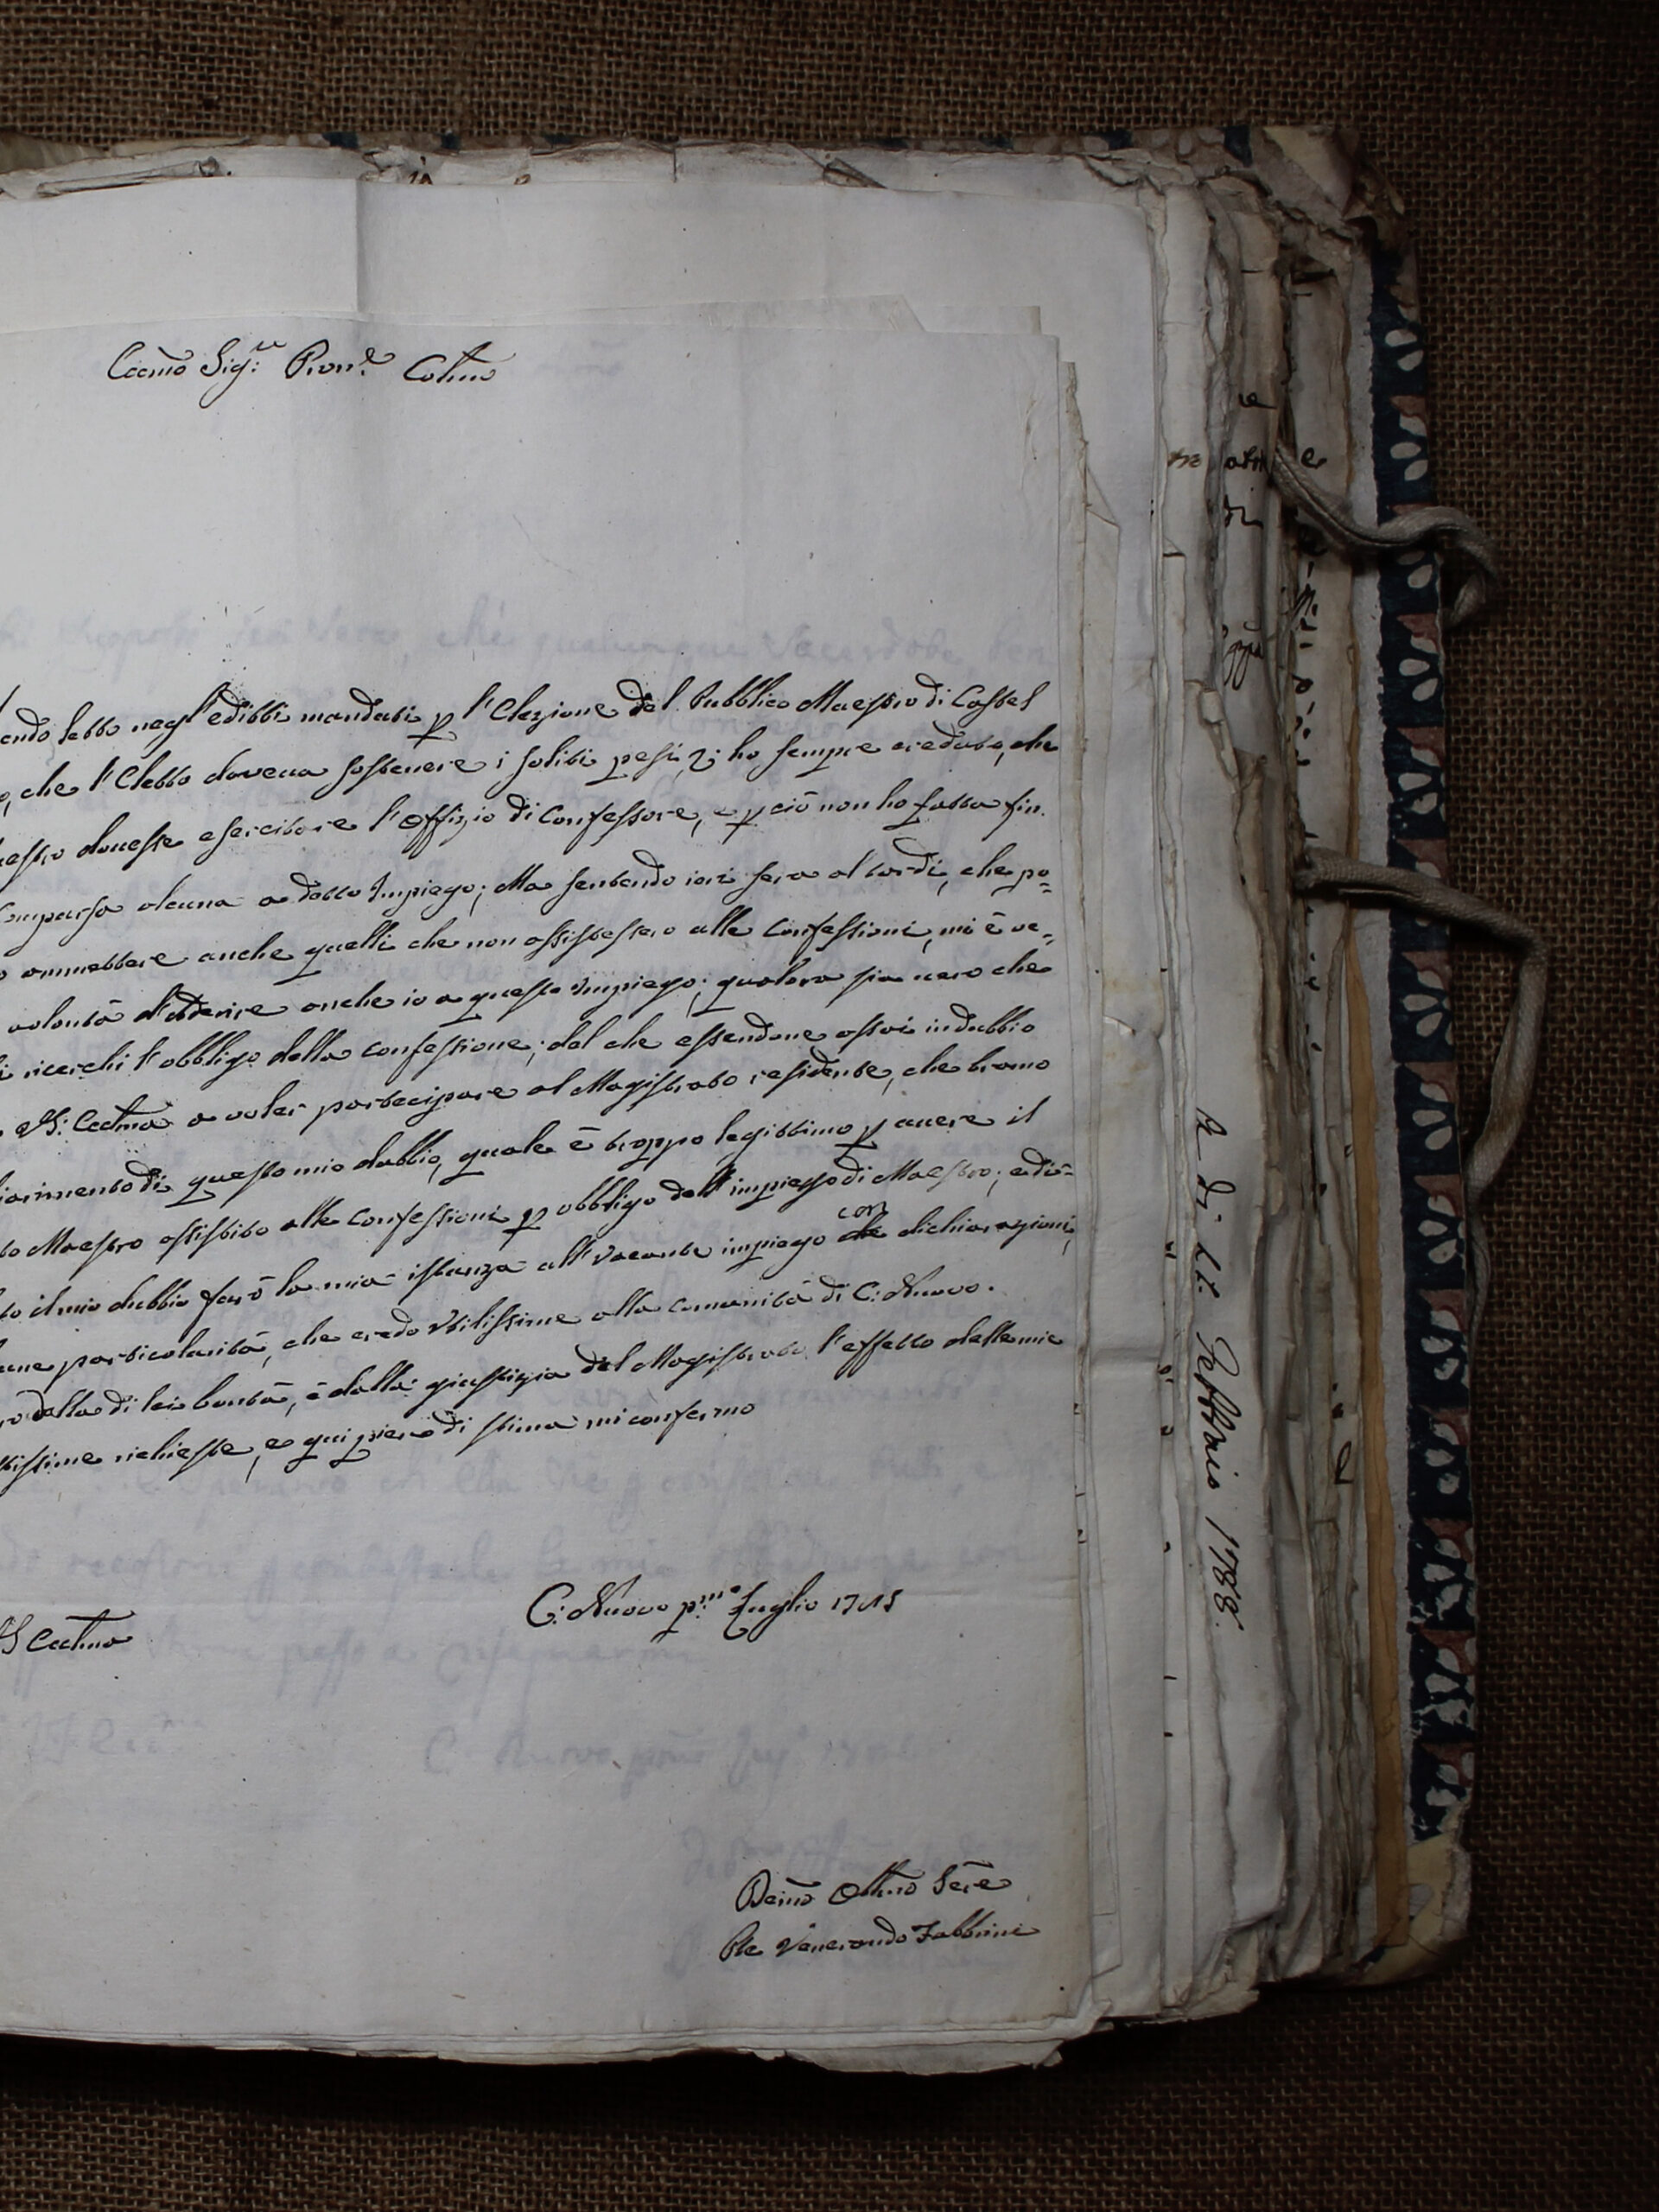 Eccmo Sig:re Pron:e Colmo
endo letto negl'editti mandati p l'Elezione del Pubblico Maestro di Castel
o, che l'Eletto doveva sostenere i soliti pesi, ho sempre creduto, che
aestro dovesse esercitare l'Offizio di Confessore, e p ciò non ho fatto fin
Comparsa alcuna a detto Impiego; Ma sentendo ieri sera al tardi, che po=
o ammettere anche quelli che non assistessero alle Confessioni, mi è ve=
volontà d'aderire anche io a questo Impiego; qualora sia vero che
i ricerchi l'obbligo della confessione; del che essendone assai in dubbio
VS: Eccma a voler partecipare al Magistrato residente, che bramo
iarimento di questo mio dubbio, quale è troppo legittimo p avere il
to Maestro assistito alle Confessioni p obbligo dell'impiego di Maestro; e di=
to il mio dubbio farò la mia istanza all'vacante impiego con dichiarazioni,
cune particolarità, che credo Utilissime alla comunità di C: Nuovo.
rò dalla di lei bontà, e dalla giustizia del Magistrato l'effetto delle mie
tissime richieste, e qui pieno di stima mi confermo
VS Eccma
C: Nuovo p:mo Luglio 17
Devmo Obmo Sere
Pte Venerando Fabbrini
A dì 27. Febbraio 1788.